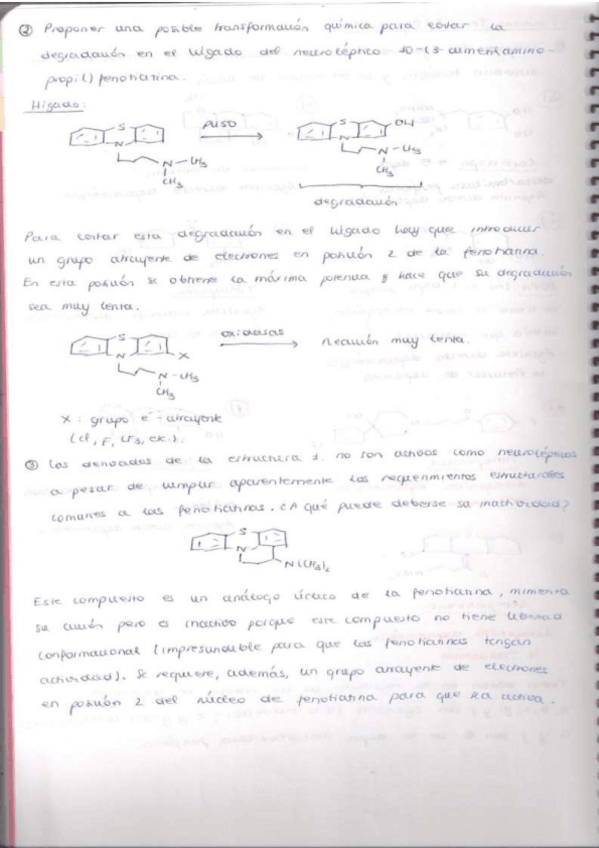 ② Proponer una posible transformación química para evitar la
degradación en el hígado del neuroléptico 10-(3-dimentilamino-
propil) fenotiazina.
Hígado:
S
N
N-CH3
CH3
S
OH
N
N-CH3
CH3
degradación
Para evitar esta degradación en el hígado hay que introducir
un grupo atrayente de electrones en posición 2 de la fenotiazina.
En esta posición se obtiene la máxima potencia y hace que su degradación
sea muy lenta.
S
N
X
oxidasas
Reacción muy lenta.
N-CH3
CH3
X: grupo e⁻-atrayente
(Cl, F, CF3, etc.).
③ Los derivados de la estructura 1. no son activos como neurolépticos
a pesar de cumplir aparentemente los requerimientos estructurales
comunes a las fenotiazinas. ¿A qué puede deberse su inactividad?
S
N
N(CH3)2
Este compuesto es un análogo cíclico de la fenotiazina, mimetiza
su acción pero es inactivo porque este compuesto no tiene libertad
conformacional (imprescindible para que las fenotiazinas tengan
actividad). Se requiere, además, un grupo atrayente de electrones
en posición 2 del núcleo de fenotiazina para que sea activa.